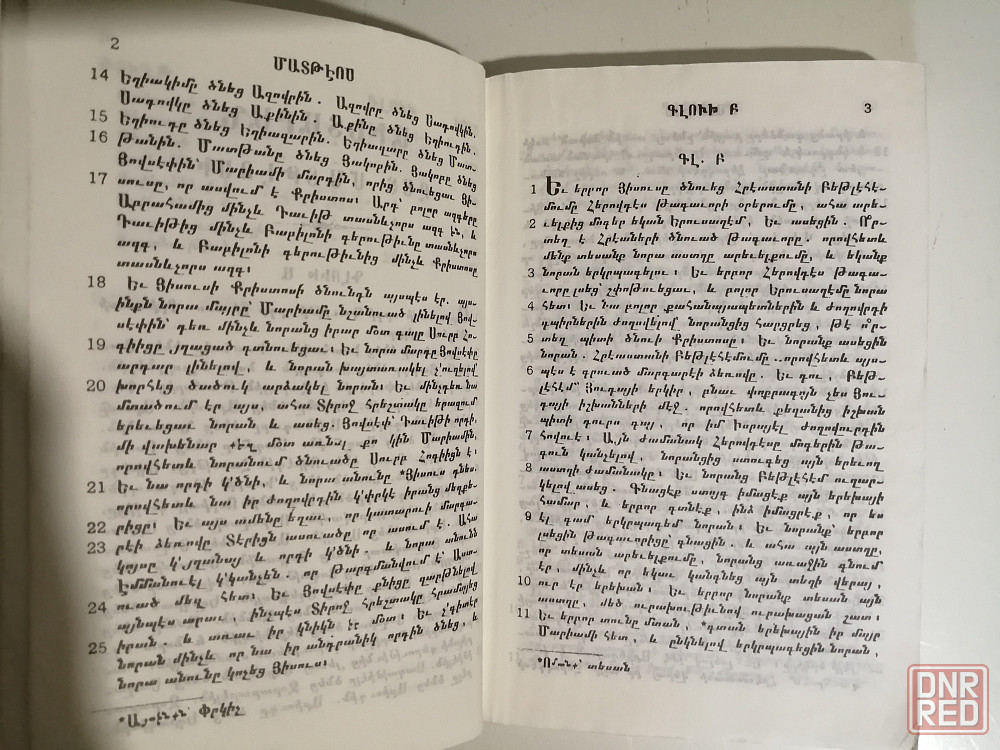 2
ՄԱՏԹԷՈՍ
14 Եղիակիմը ծնեց Ազովրին. Ազովրը ծնեց Սադովկին.
Սադովկը ծնեց Աքինին. Աքինը ծնեց Եղիուդին.
15 Եղիուդը ծնեց Եղիազարին. Եղիազարը ծնեց Մատ-
16 թանին. Մատթանը ծնեց Յակոբին. Յակոբը ծնեց
Յովսէփին՝ Մարիամի մարդին, որից ծնուեցաւ Յի-
17 սուսը, որ ասվում է Քրիստոս։ Արդ՝ բոլոր ազգերը
Աբրահամից մինչև Դաւիթ տասնևչորս ազգ են, և
Դաւիթից մինչև Բաբիլոնի գերութիւնը տասնևչորս
ազգ, և Բաբիլոնի գերութիւնից մինչև Քրիստոսը
տասնևչորս ազգ։
18 Եւ Յիսուսի Քրիստոսի ծնունդն այսպէս էր. այս-
ինքն նորա մայրը՝ Մարիամը նշանուած լինելով Յով-
սէփին՝ դեռ մինչև նորանց իրար մօտ գալը Սուրբ Հո-
19 գիիցը յղացած գտնուեցաւ։ Եւ նորա մարդը Յովսէփը
արդար լինելով, և նորան խայտառակել չ՚ուզելով
20 խորհեց ծածուկ արձակել նորան։ Եւ մինչդեռ նա
մտածում էր այս, ահա Տիրոջ հրեշտակը երազում
երեւեցաւ նորան և ասեց. Յովսէփ՝ Դաւիթի որդի,
մի վախենար քեզ մօտ առնել քո կին Մարիամին,
որովհետև նորանում ծնուածը Սուրբ Հոգիիցն է։
21 Եւ նա որդի կ՚ծնի, և նորա անունը *Յիսուս դնես.
որովհետև նա իր ժողովրդին կ՚փրկէ իրանց մեղքե-
22 րիցը։ Եւ այս ամենը եղաւ, որ կատարուի մարգա-
23 րէի ձեռովը Տէրիցն ասուածը որ ասում է. Ահա
կոյսը կ՚յղանայ և որդի կ՚ծնի. և նորա անունն
Էմմանուէլ կ՚կանչեն. որ թարգմանվում է՝ Աստ-
ուած մեզ հետ։ Եւ Յովսէփը քնիցը զարթնելով
24 այնպէս արաւ, ինչպէս Տիրոջ հրեշտակը հրամայեց
իրան. և առաւ իր կնիկն իր մօտ։ Եւ չ՚գիտէր
25 նորան մինչև որ նա իր անդրանիկ որդին ծնեց, և
նորա անունը կոչեց Յիսուս։
*Այսինքն՝ Փրկիչ
ԳԼՈՒԽ Բ 3
ԳԼ. Բ
1 Եւ երբոր Յիսուսը ծնուեց Հրէաստանի Բեթլէհէ-
մումը Հերովդէս թագաւորի օրերումը, ահա արե-
2 ւելքից մոգեր եկան Երուսաղէմ, Եւ ասեցին. Ո՞ր-
տեղ է Հրէաների ծնուած թագաւորը. որովհետև
մենք տեսանք նորա աստղը արեւելքումը, և եկանք
3 նորան երկրպագելու։ Եւ երբոր Հերովդէս թագա-
ւորը լսեց՝ շփոթուեցաւ, և բոլոր Երուսաղէմը նորա
4 հետ։ Եւ նա բոլոր քահանայապետներին և ժողովրդի
դպիրներին ժողովելով նորանցից հարցրեց, թէ ո՞ր-
5 տեղ պիտի ծնուի Քրիստոսը։ Եւ նորանք ասեցին
նորան. Հրէաստանի Բեթլէհէմումը. որովհետև այս-
6 պէս է գրուած մարգարէի ձեռովը. Եւ դու, Բեթ-
լէհէմ՝ Յուդայի երկիր, բնաւ փոքրագոյն չես Յու-
դայի իշխանների մէջ. որովհետև քեզանից իշխան
պիտի դուրս գայ, որ իմ Իսրայէլ ժողովուրդին
7 հովուէ։ Այն ժամանակ Հերովդէսը մոգերին թա-
գուն կանչելով, նորանցից ստուգեց այն երեւող
8 աստղի ժամանակը։ Եւ նորանց Բեթլէհէմ ուղար-
կելով ասեց. Գնացէք ստոյգ իմացէք այն երեխայի
համար, և երբոր գտնէք, ինձ իմացրէք, որ ես
9 էլ գամ երկրպագեմ նորան։ Եւ նորանք՝ երբոր
լսեցին թագաւորիցը՝ գնացին. և ահա այն աստղը,
որ տեսան արեւելքումը, նորանց առաջին գնում
էր, մինչև որ եկաւ կանգնեց այն տեղի վերայ,
10 ուր էր երեխան։ Եւ երբոր նորանք տեսան այն
աստղը, մեծ ուրախութիւնով ուրախացան շատ։
11 Եւ երբոր տունը մտան, *գտան երեխային իր մայր
Մարիամի հետ, և ընկնելով երկրպագեցին նորան,
*Ոմանք՝ տեսան
DNR
RED